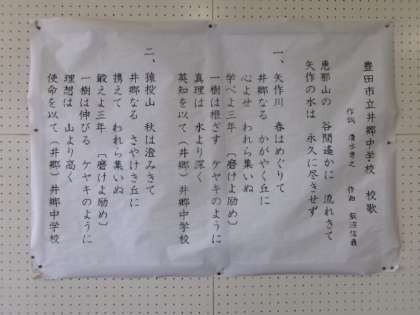 豊田市立井郷中学校　校歌
作詞 清水
作曲
恵那山の　谷間遥かに　流れきて
矢作の水は　永久に尽きせず
一、矢作川　春はめぐりて
井郷なる　かがやく丘に
心よせ　われら集いぬ
学べよ三年　〔磨けよ励め〕
一樹は橙ざす　ケヤキのように
真理は　水より深く
英知を以て（井郷）井郷中学校
二、猿投山　秋は澄みきて
井郷なる　さやけき丘に
携えて　われら集いぬ
鍛えよ三年　〔磨けよ励め〕
一樹は伸びる　ケヤキのように
理想は　山より高く
使命を以て（井郷）井郷中学校